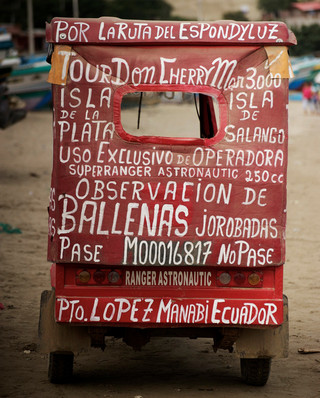 POR LA RUTA DEL ESPONDYLUZ
TOUR DON CHERRY MAR 3.000
ISLA DE LA PLATA
ISLA DE SALANGO
USO EXCLUSIVO DE OPERADORA
SUPERRANGER ASTRONAUTIC 250cc
OBSERVACION DE
BALLENAS JOROBADAS
PASE M00016817 NO PASE
RANGER ASTRONAUTIC
PTO. LOPEZ MANABI ECUADOR